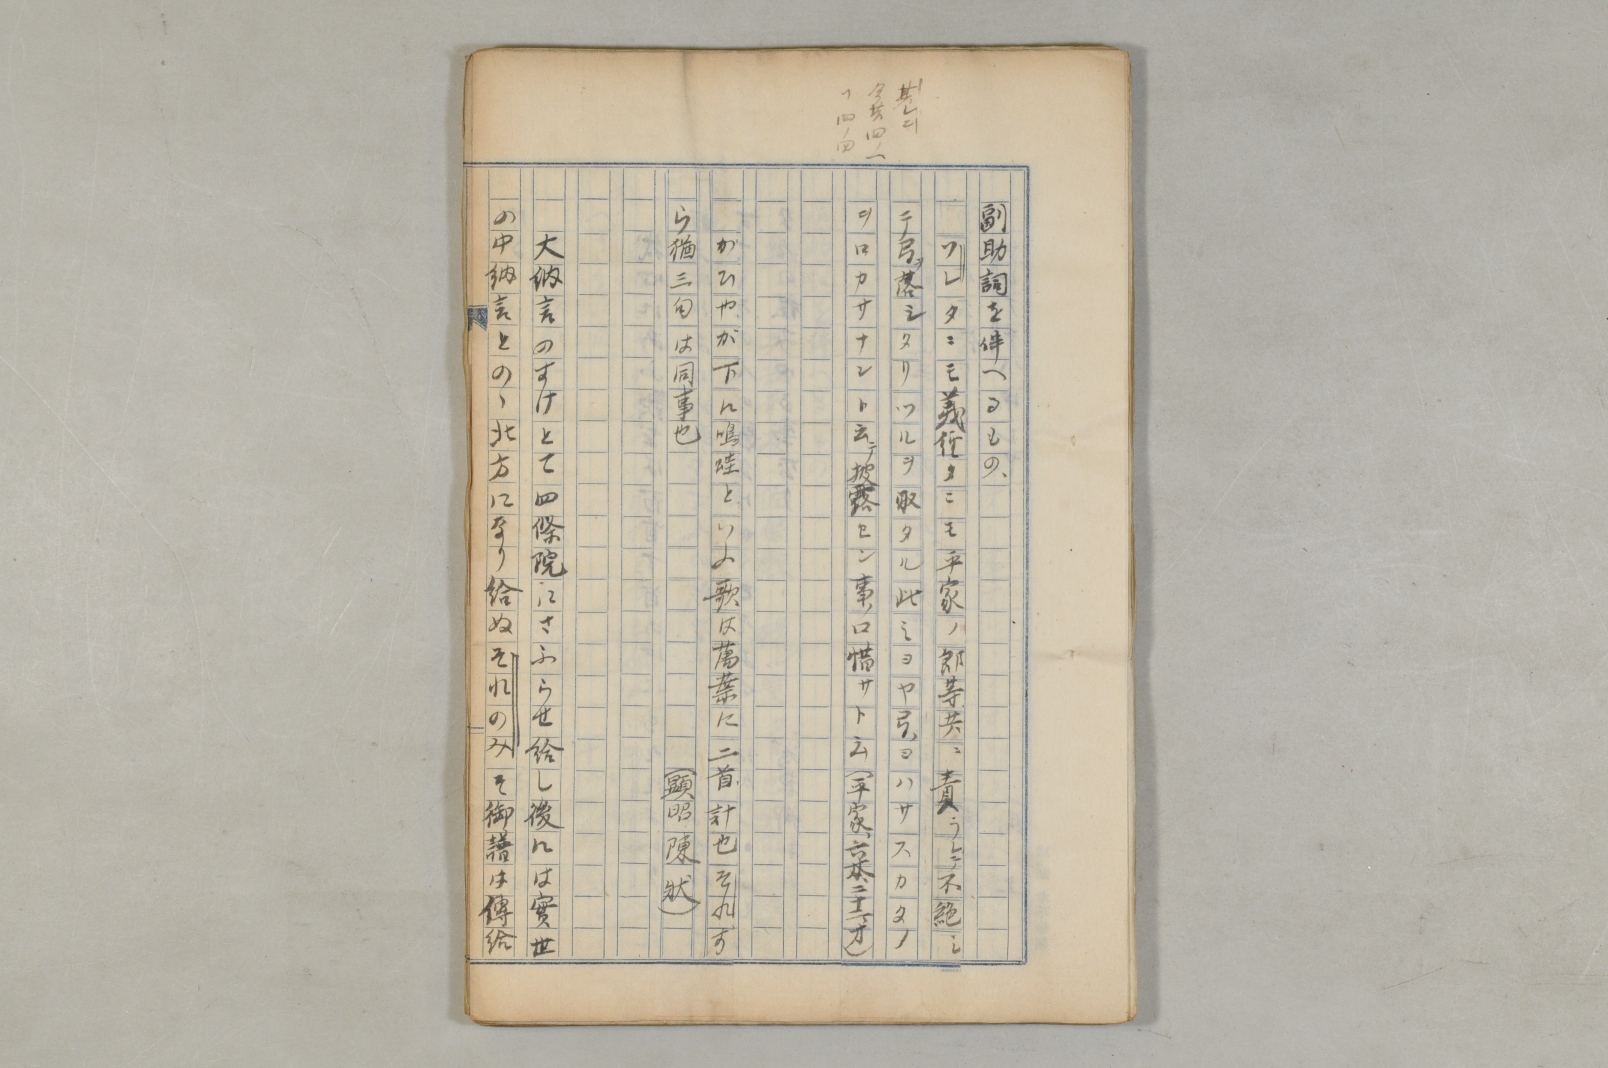 副助詞を伴へるもの、
ソレタニモ義経タニモ平家ノ郎等共ニ責ラレテ不絶シ
テ弓ヲ落シタリツルヲ取タル此ミヨヤ弓ノヨハサスカタノ
ヲロカサナント云テ披露セン事ノ口惜サト云(平家、六本、二十一オ)
がひやが下に鳴蛙といふ歌は萬葉に二首計也それす
ら猶三句は同事也
(顕昭陳状)
大納言のすけとて四條院にさふらせ給し後には實世
の中納言との、北方になり給ぬそれのみそ御譜は傳給